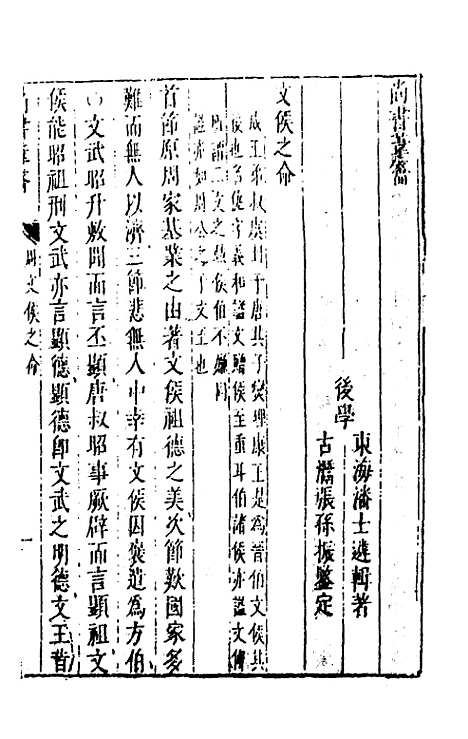 尚書葦籥
後學
東海潘士遴輯著
古𨞬張孫振鑒定
文侯之命
成王弟叔虞封于唐其子燮理康王是為晉伯文侯其
後也名仇字義和諡文贈侯至重耳伯諸侯亦諡文傳
所謂二文之勲侯伯不嫌同
諡亦如周公之于文王也
首節原周家基業之由著文侯祖德之美次節歎國家多
難而無人以濟三節悲無人中幸有文侯因褒遣為方伯
○文武昭升敷聞而言丕顯唐叔昭事厥辟而言顯祖文
侯能昭祖刑文武亦言顯德顯德即文武之明德文王昔
尚書葦籥
周文侯之命
一